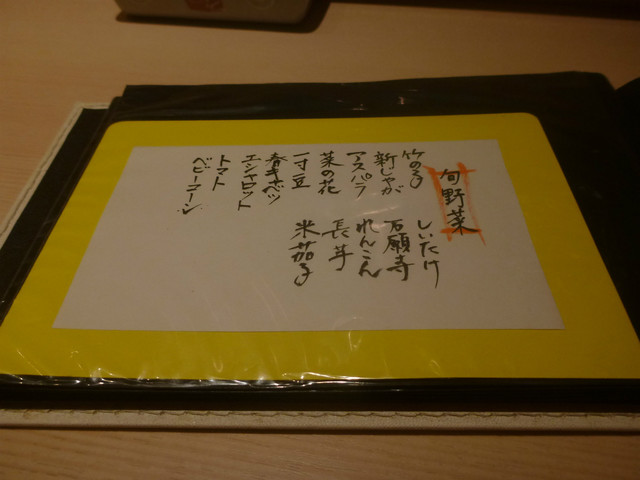 旬野菜
竹の子
新じゃが
アスパラ
菜の花
一寸豆
春キャベツ
エシャロット
トマト
ベビーコーン
しいたけ
石願寺
れんこん
長芋
米茄子